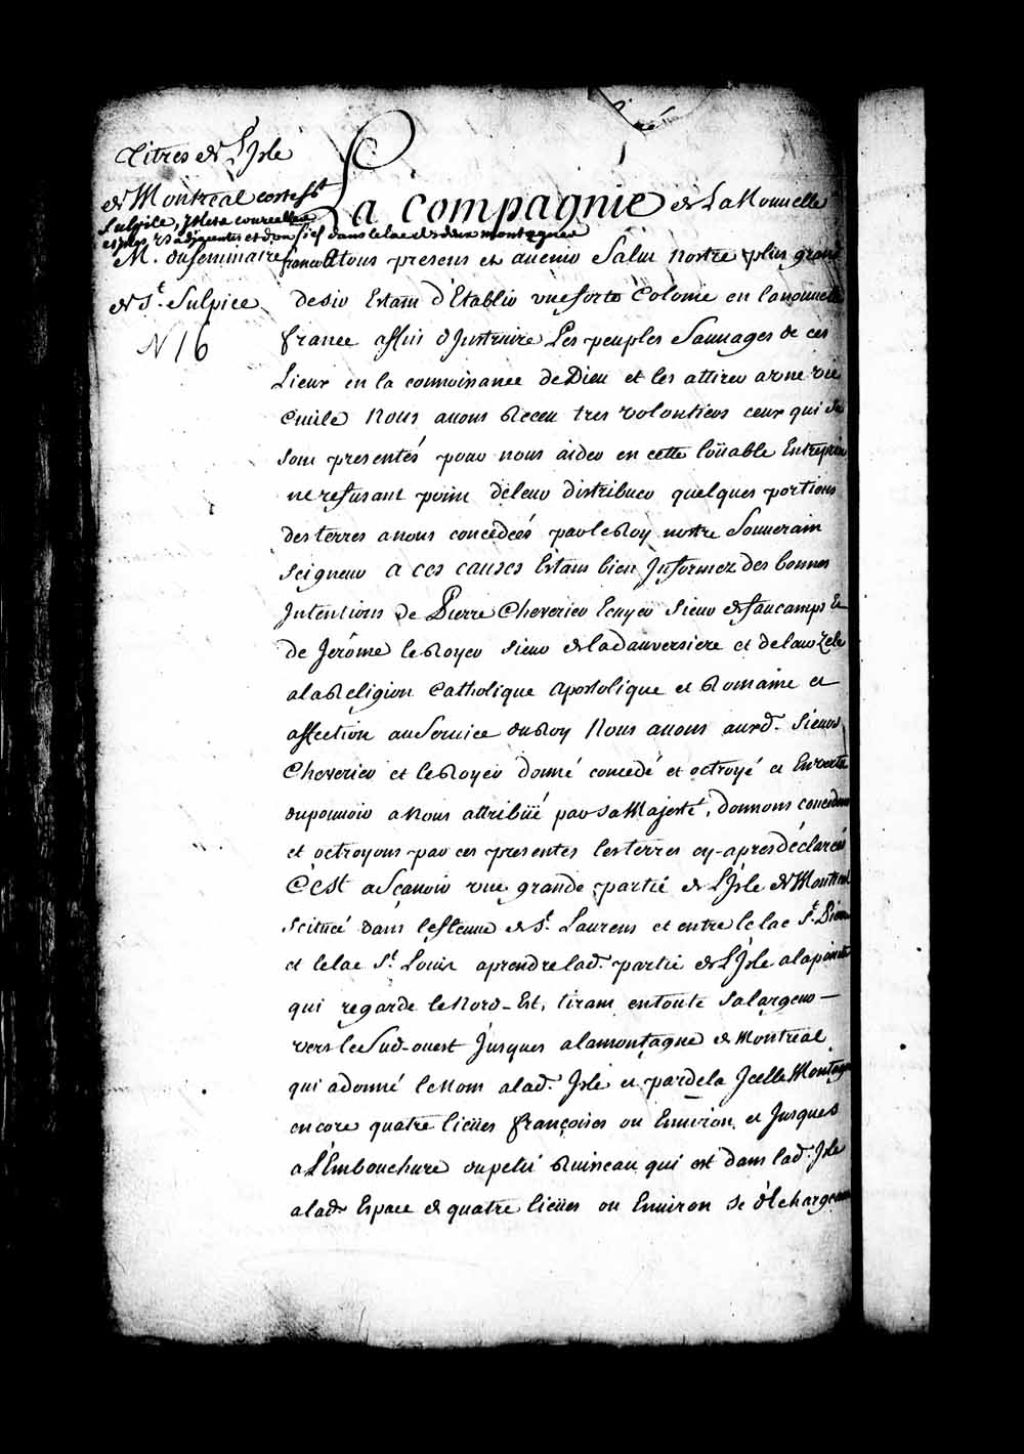 Titres de L'Isle
de Montreal coste St
Sulpice, Isles courcelles
et dun fief dans le lac des deux montagnes
M. du seminaire
de St. Sulpice
N 16
La compagnie de La Nouuelle
france A tous presens et auenir Salut Nostre plus grand
desir Estant d'Establir vne forte Colonie en la nouuelle
france affin d'Instruire Les peuples Sauuages de ces
Lieux en la connoissance de Dieu et les attirer a vne vie
Ciuile Nous auons Receu tres volontiers ceux qui se
sont presentés pour nous aider en cette loüable Entreprise
ne refusant point de leur distribuer quelques portions
des terres a nous concedeés par le Roy nostre Souuerain
seigneur A ces causes Estans bien Informez des bonnes
Intentions de Pierre Cheverier Ecuyer Sieur de faucamps Et
de Jerôme le Royer sieur de la dauversiere et de leur zele
a la Religion Catholique Apostolique et Romaine et
affection au Seruice du Roy Nous auons aux d. Sieurs
Cheverier et le Royer donné concedé et octroyé et En vertu
du pouuoir a Nous attribüé par sa Majesté, donnons concedons
et octroyons par ces presentes les terres cy-apres déclareés
C'est a Sçauoir vne grande partie de L'Isle de Montreal
scituée dans le fleuue de St. Laurens et entre le lac St. Pierre
et le lac St. Louis a prendre lad. partie de L'Isle a la pointe
qui regarde le Nord-Est, tirant en toute sa largeur -
vers le Sud-ouest Jusques a la montagne de Montreal
qui a donné le Nom a lad. Isle et par dela Icelle Montagne
encore quatre lieües françoises ou Enuiron et Jusques
a L'Embouchure du petit Ruisseau qui est dans lad. Isle
a lade Espace de quatre lieües ou Enuiron se déchargeant